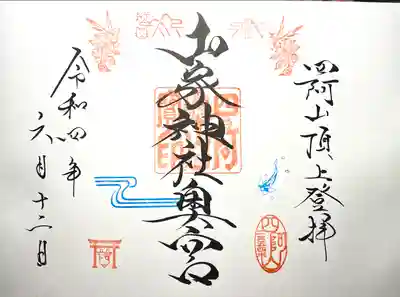 四阿山頂上登拝
山家神社奥宮
令和四年
六月十二日